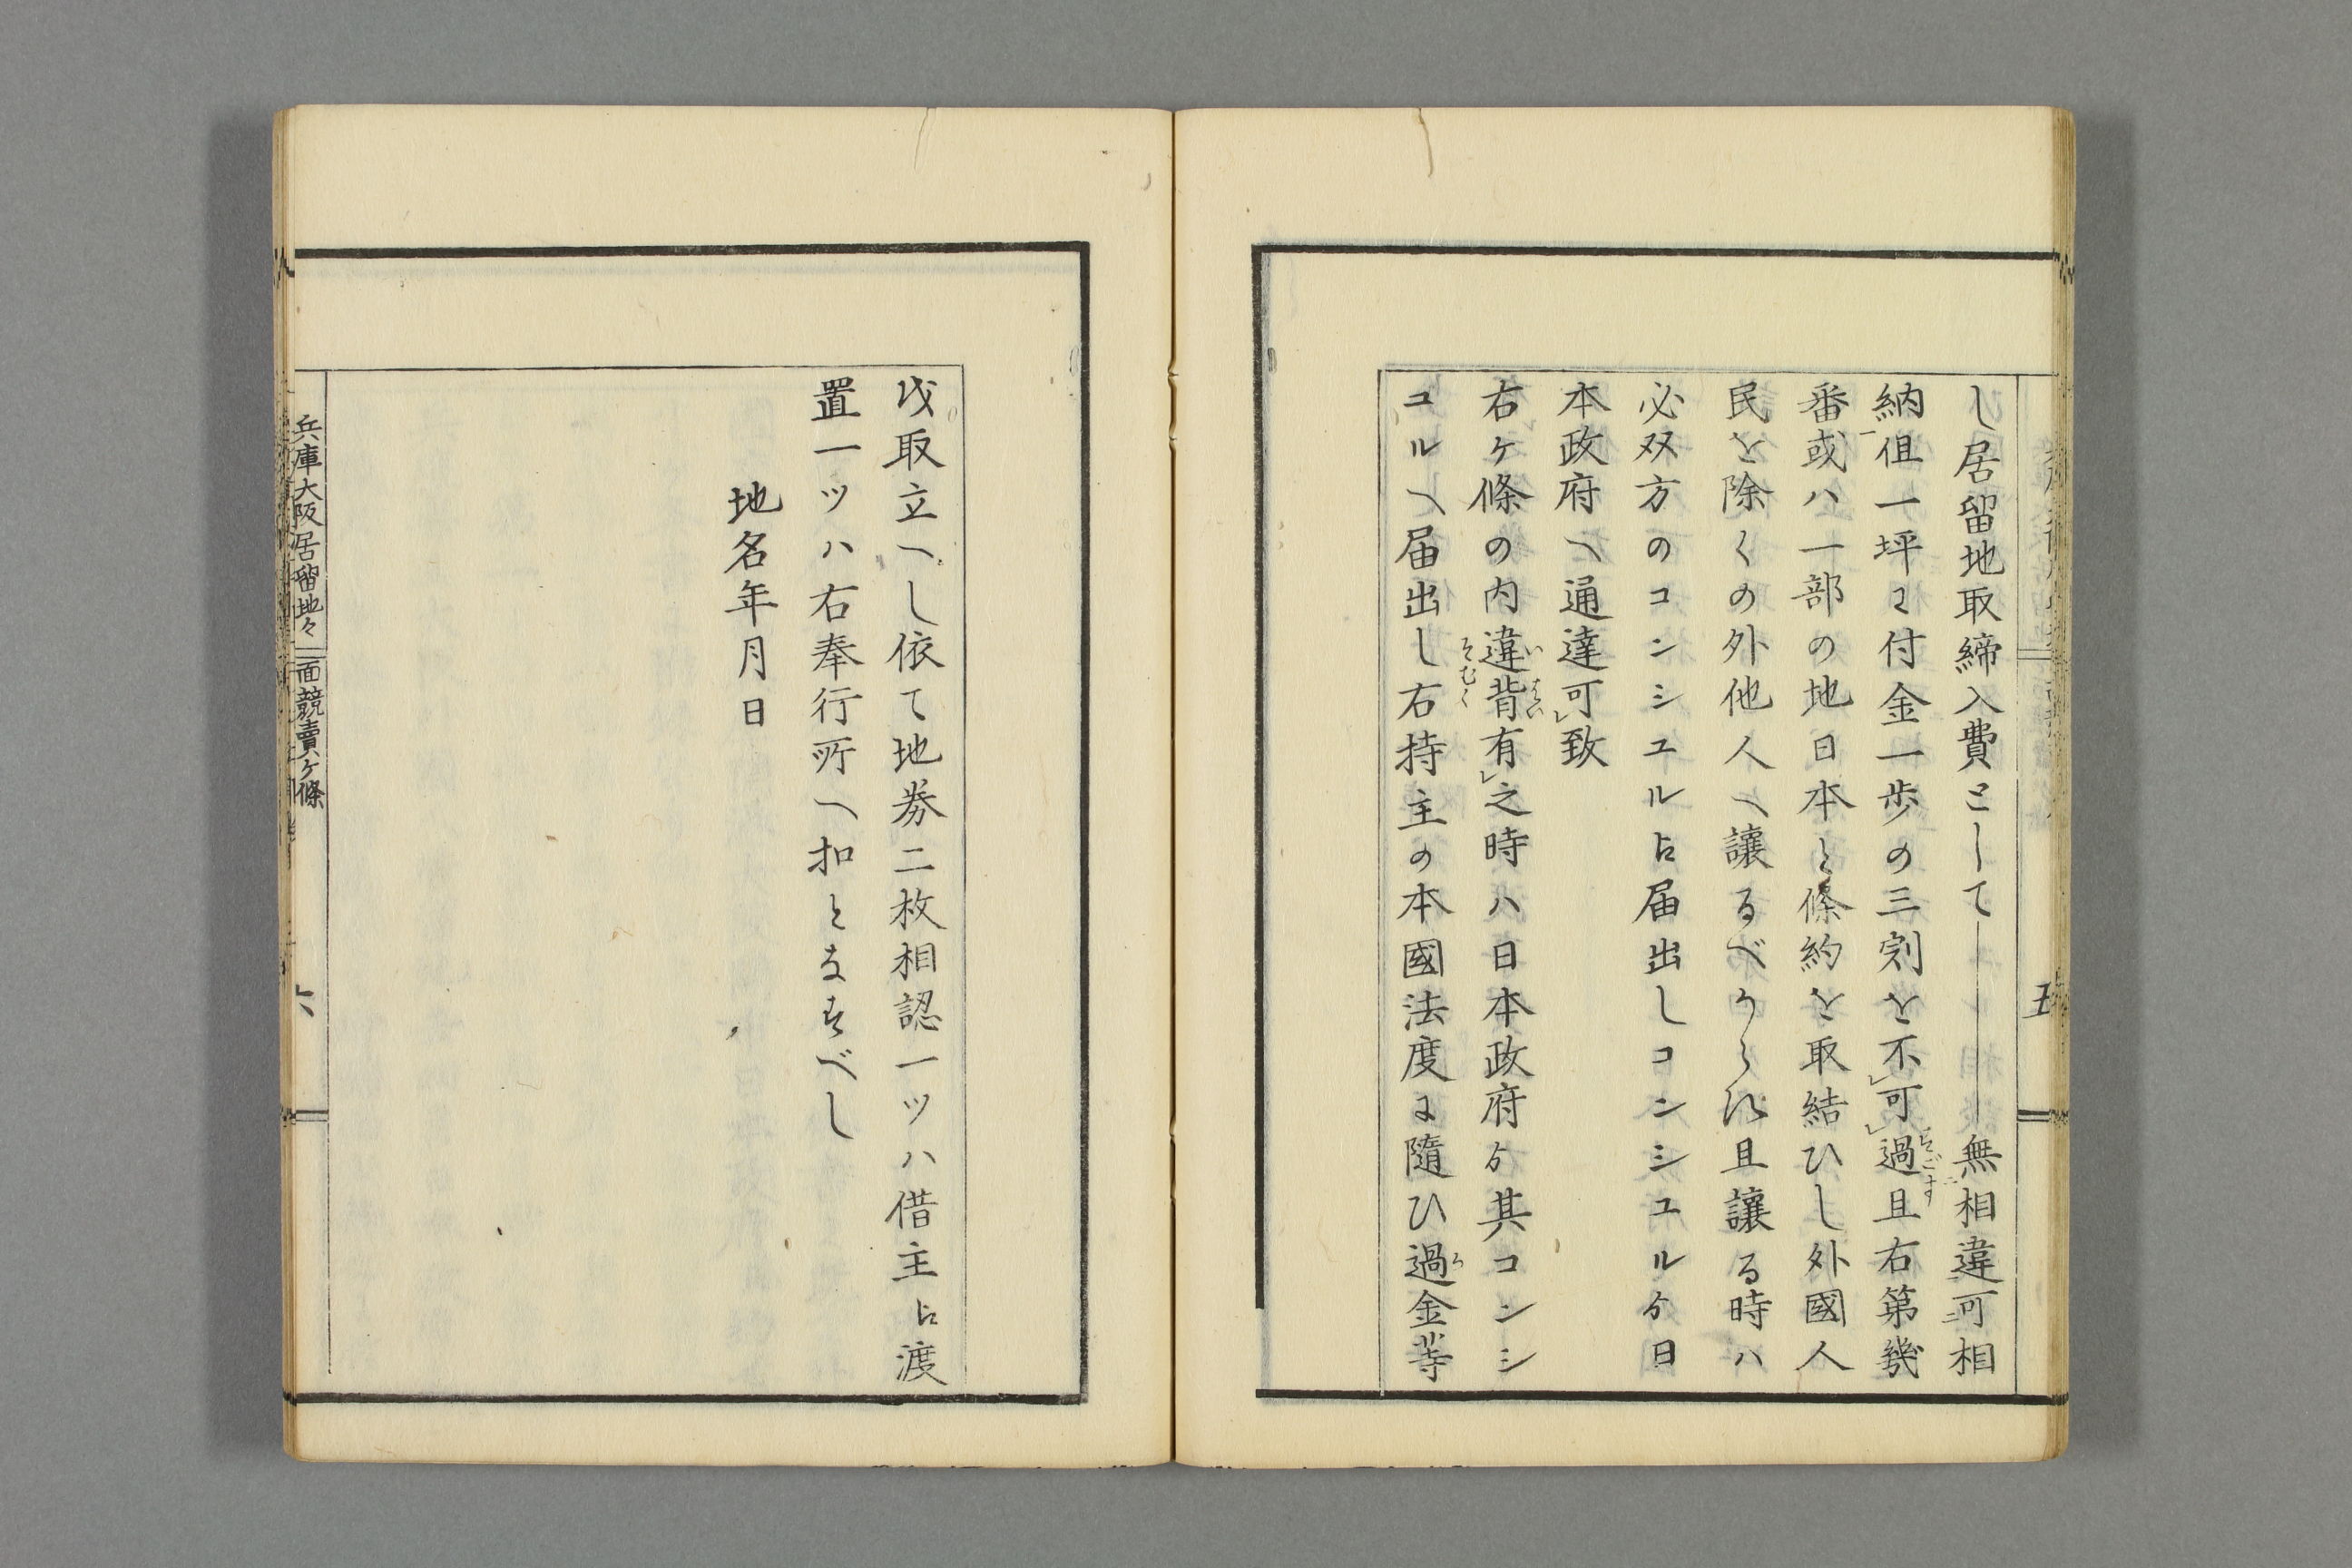 し居留地取締入費として――無相違可相
納但一坪に付金一歩の三割を不可過且右第幾
番或ハ一部の地日本と條約を取結ひし外國人
民を除くの外他人へ讓るべからす且讓る時ハ
必双方のコンシユルゟ届出しコンシユルゟ日
本政府へ通達可致
右ヶ條の内違背有之時ハ日本政府ゟ其コンシ
ユルへ届出し右持主の本國法度に隨ひ過金等
五
を取立へし依て地券二枚相認一ツハ借主ゟ渡
置一ツハ右奉行所へ扣となすべし
地名年月日
兵庫大阪居留地々面競賣ヶ條
六